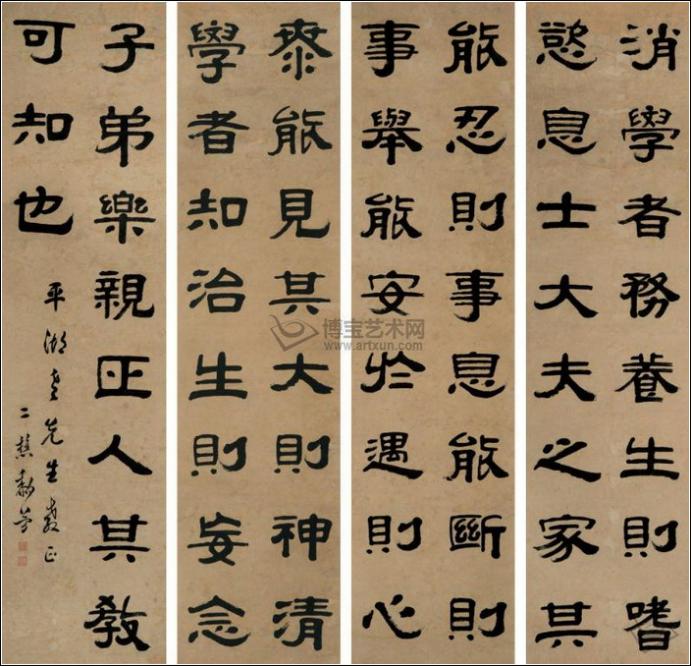 消學者務養生則嗜
慾息士大夫之家其
能忍則事息能斷則
事舉能安於遇則心
泰能見其大則神清
學者知治生則妄念
子弟樂親正人其教
可知也
平湖老先生教正
二樵黎簡
博宝艺术网
www.artxun.com